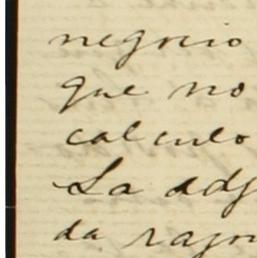 negocio
que no
calculo
La adj
da razon